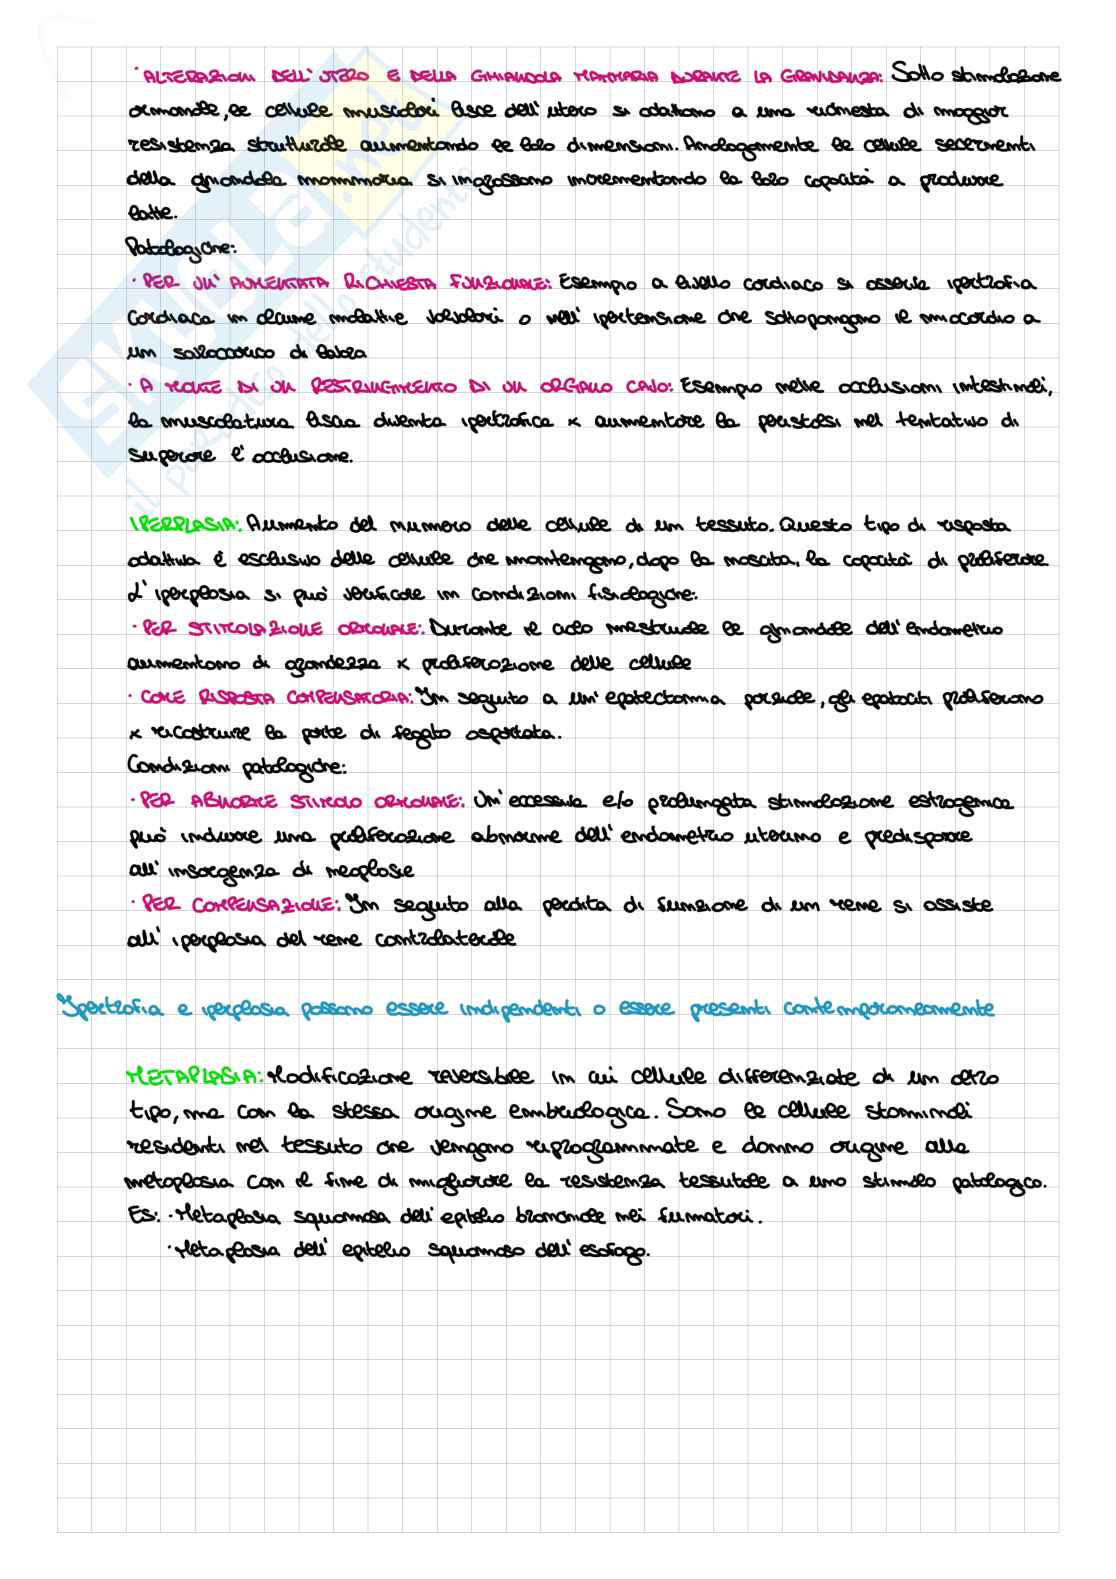 · ALTERAZIONI DELL'UTERO E DELLA GHIANDOLA MAMMARIA DURANTE LA GRAVIDANZA: Sotto stimolazione
ormonale, le cellule muscolari lisce dell'utero si adattano a una richiesta di maggior
resistenza strutturale aumentando le loro dimensioni. Analogamente le cellule secernenti
della ghiandola mammaria si ingrossano incrementando la loro capacità a produrre
latte.
Patologiche:
· PER UN' AUMENTATA RICHIESTA FUNZIONALE: Esempio a livello cardiaco si osserva ipertrofia
cardiaca in alcune malattie valvolari o nell' ipertensione che sottopongono il miocardio a
un sovraccarico di lavoro
· A MONTE DI UN RESTRINGIMENTO DI UN ORGANO CAVO: Esempio nelle occlusioni intestinali,
la muscolatura liscia diventa ipertrofica x aumentare la peristalsi nel tentativo di
superare l'occlusione.
IPERPLASIA: Aumento del numero delle cellule di un tessuto. Questo tipo di risposta
adattiva è esclusivo delle cellule che mantengono, dopo la nascita, la capacità di proliferare
L'iperplasia si può verificare in condizioni fisiologiche:
· PER STIMOLAZIONE ORMONALE: Durante il ciclo mestruale le ghiandole dell'endometrio
aumentano di grandezza x proliferazione delle cellule
· COME RISPOSTA COMPENSATORIA: In seguito a un'epatectomia parziale, gli epatociti proliferano
x ricostruire la parte di fegato asportata.
Condizioni patologiche:
· PER ABNORME STIMOLO ORMONALE: Un'eccessiva e/o prolungata stimolazione estrogenica
può indurre una proliferazione abnorme dell'endometrio uterino e predisporre
all'insorgenza di neoplasie
· PER COMPENSAZIONE: In seguito alla perdita di funzione di un rene si assiste
all'iperplasia del rene controlaterale
Ipertrofia e iperplasia possono essere indipendenti o essere presenti contemporaneamente
METAPLASIA: Modificazione reversibile in cui cellule differenziate di un altro
tipo, ma con la stessa origine embriologica. Sono le cellule staminali
residenti nel tessuto che vengono riprogrammate e danno origine alla
metaplasia con il fine di migliorare la resistenza tessutale a uno stimolo patologico.
Es: · Metaplasia squamosa dell'epitelio bronchiale nei fumatori.
· Metaplasia dell' epitelio squamoso dell' esofago.
SKUOLA.net
il paradiso dello studente